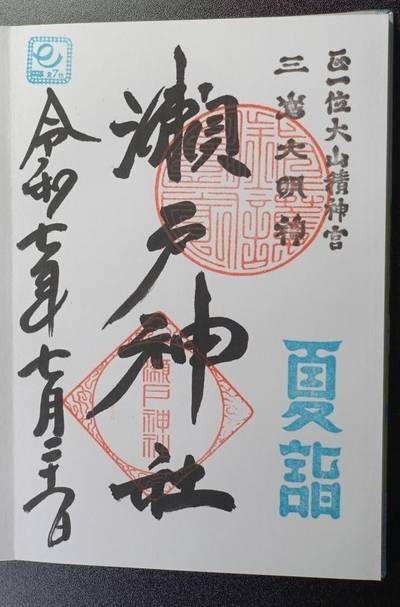 正一位大山積神宮
三嶌大明神
瀬戸神社
瀬戸神社
夏詣
令和七年七月二十六日